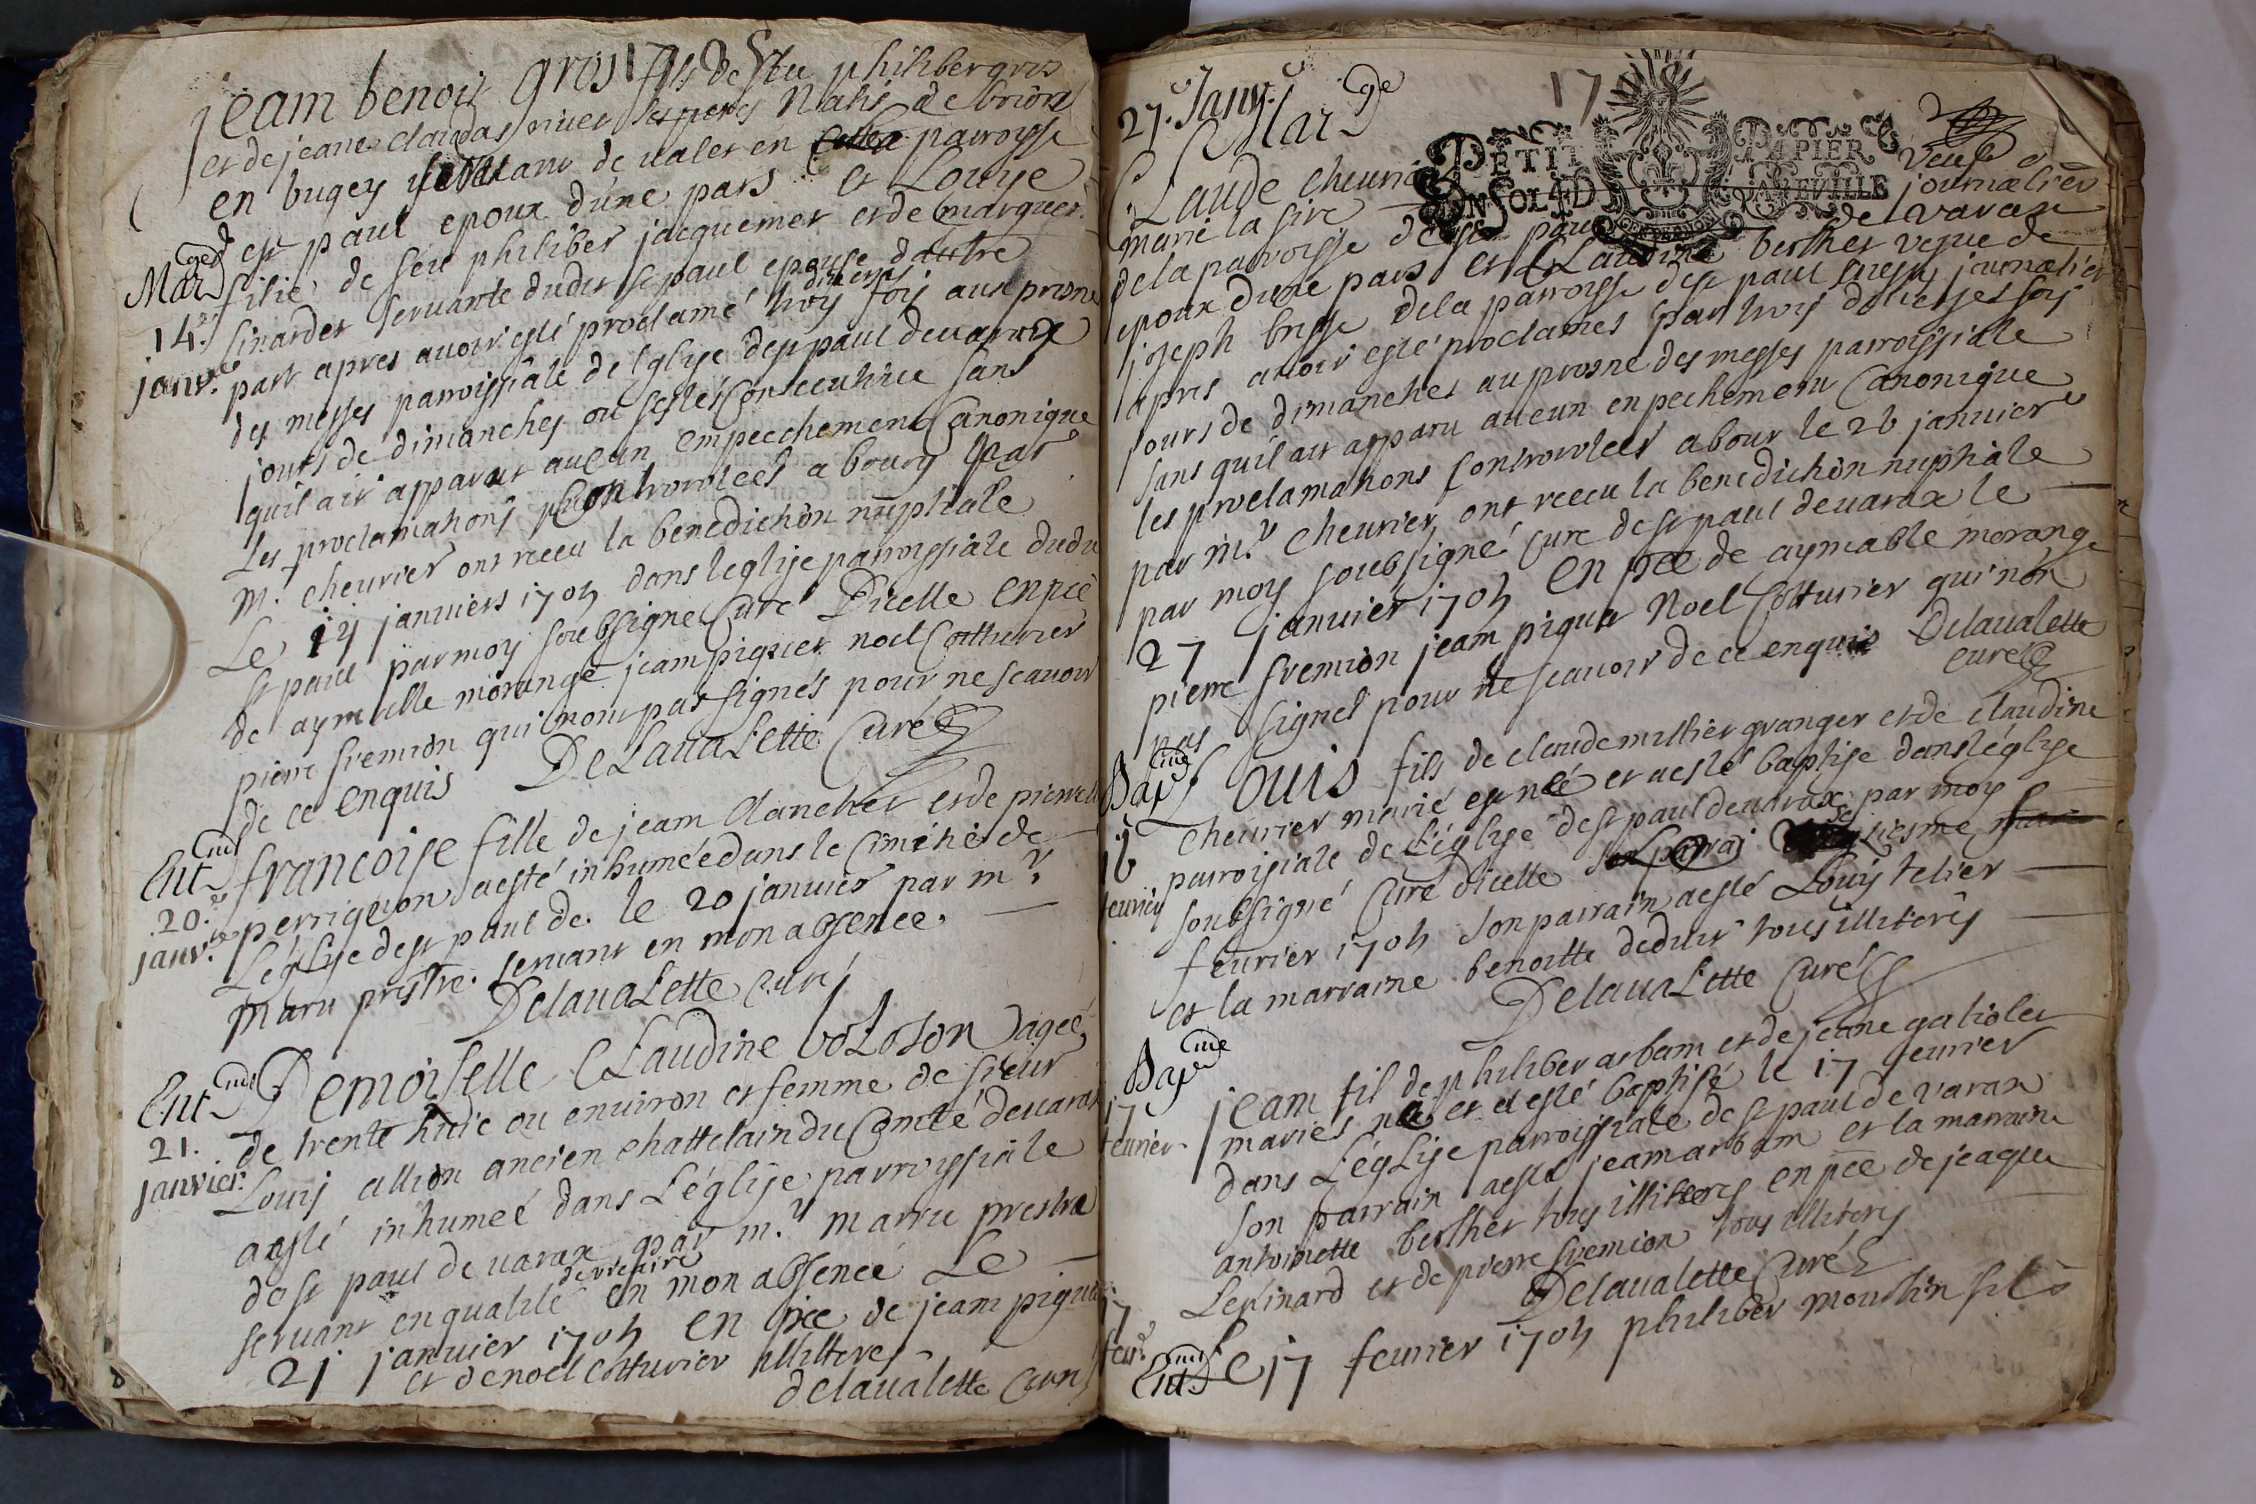 jeam benoit gros fils de feu philiber gros
et de jeane claudas river ses peres Natif de brion
en bugey habitant de valet en parroisse
de st paul epoux d'une pars et Louyse
filie de feu philiber jacquemet et de marguer.
Mar ge
14.e
janv.e
sinardet servante dudit st paul epouse dautre
part apres avoir esté proclamé trois diverses fois aux prosne
des messes parroissiale de l'eglise de st paul de varax
jours de dimanches ou festes consecutive sans
quil ait apparut aucun empecchement Canonique
les proclamations controolees a bourg par
m.r cheurier ont receu la benediction nuptiale
Le 14 janviers 1705 dans leglise parroissiale dudit
st paul par moy soubsigne Curé Dicelle en pñce
de aymable morange jeam piquet noel Cotturier
pierre fremion qui nont pas signés pour ne scavoir
de ce enquis DeLavaLette Curé
Ent
20.e
janv.e
francoise fille de jeam Clanchet et de pierrette
perrigeon a esté inhumée dans le Cimitié de
Léglise de st paul de. le 20 janvier par m.r
maru prestre servant en mon absence.
DelavaLette curé
Ent
21.
janvier.
Demoiselle Claudine boLoson agée
de trente huic ou environ et femme de sieur
Louis allion ancien chattelain du Comté de varax
a esté inhumeé dans L'église parroissiale
de st paul de varax par m.r marru prestre
servant en qualité de vicaire en mon absencé Le
21 janvier 1705 en pñce de jeam piquet
et de noel cotturier illiteres
delavalette Curé
27.e Janv.e
Mar ge
17
PETIT PAPIER
UN SOL 4 D
GEN DE BOURG
Claude cheurie veuf
marié la sire journalier
de la parroisse de st paul de varax
epoux d'une pars et Claudine berthet vefve de
joseph brisse de la parroisse de st paul journalier
apres avoir esté proclames par trois diverses fois
jours de dimanches au prosne des messes parroissiale
sans quil ait apparu aucun enpechement Canonique
les proclamations controolees a bour le 26 janvier
par m.r cheurier ont receu la benediction nuptiale
par moy soubsigné cure de st paul de varax le
27 janvier 1705 en pñce de aymable morange
pierre fremion jeam piquet Noel Cotturier qui non
pas signes pour ne scavoir de ce enquis Delavalette
curé
Bap
16
fevrier
Louis fils de claude millier granger et de claudine
cheurier marié est né et a esté baptise dans léglise
parroissiale de L'église de st paul de varax par moy
soubsigné Curé dicelle
fevrier 1705 son parrain a esté Louis telier
et la marraine benoitte deduit tous illiterés
DelavaLette Curé
Bap
17
fevrier.
jeam fil de philiber arbam et de jeane gatiolet
mariés né et a esté baptisé le 17 fevrier
dans L'égLise parroissiale de st paul de varax
son parrain a esté jeam arbam et la marraine
antoinette berthet tous illiteres en pñce de jeaques
Leninard et de pierre fremion tous illiteres
Delavalette Curé
17
fevr.
Ent
Le 17 fevrier 1705 philiber moulin fils